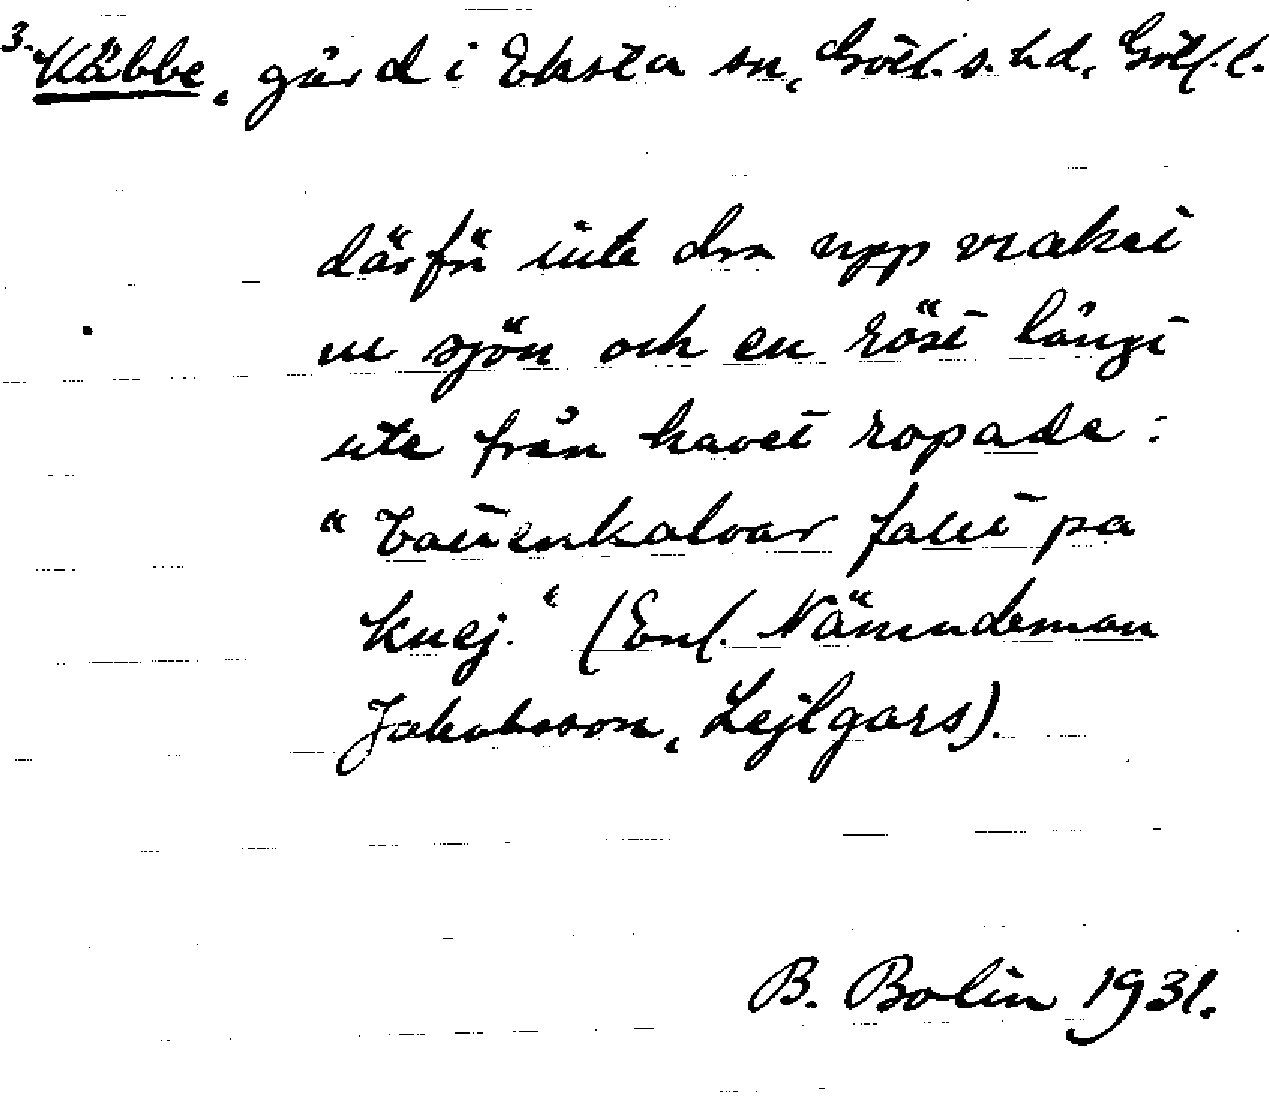 3. Käbbe, gård i Eksta sn, Gotl. s. hd, Gotl. l.
därför inte dra upp vraket
ur sjön och en röst långt
ute från havet ropade:
"Vattenkalvar fallt pa
knej." (Enl. Nämndeman
Jakobsson, Lejlgars).
B. Bolin 1931.